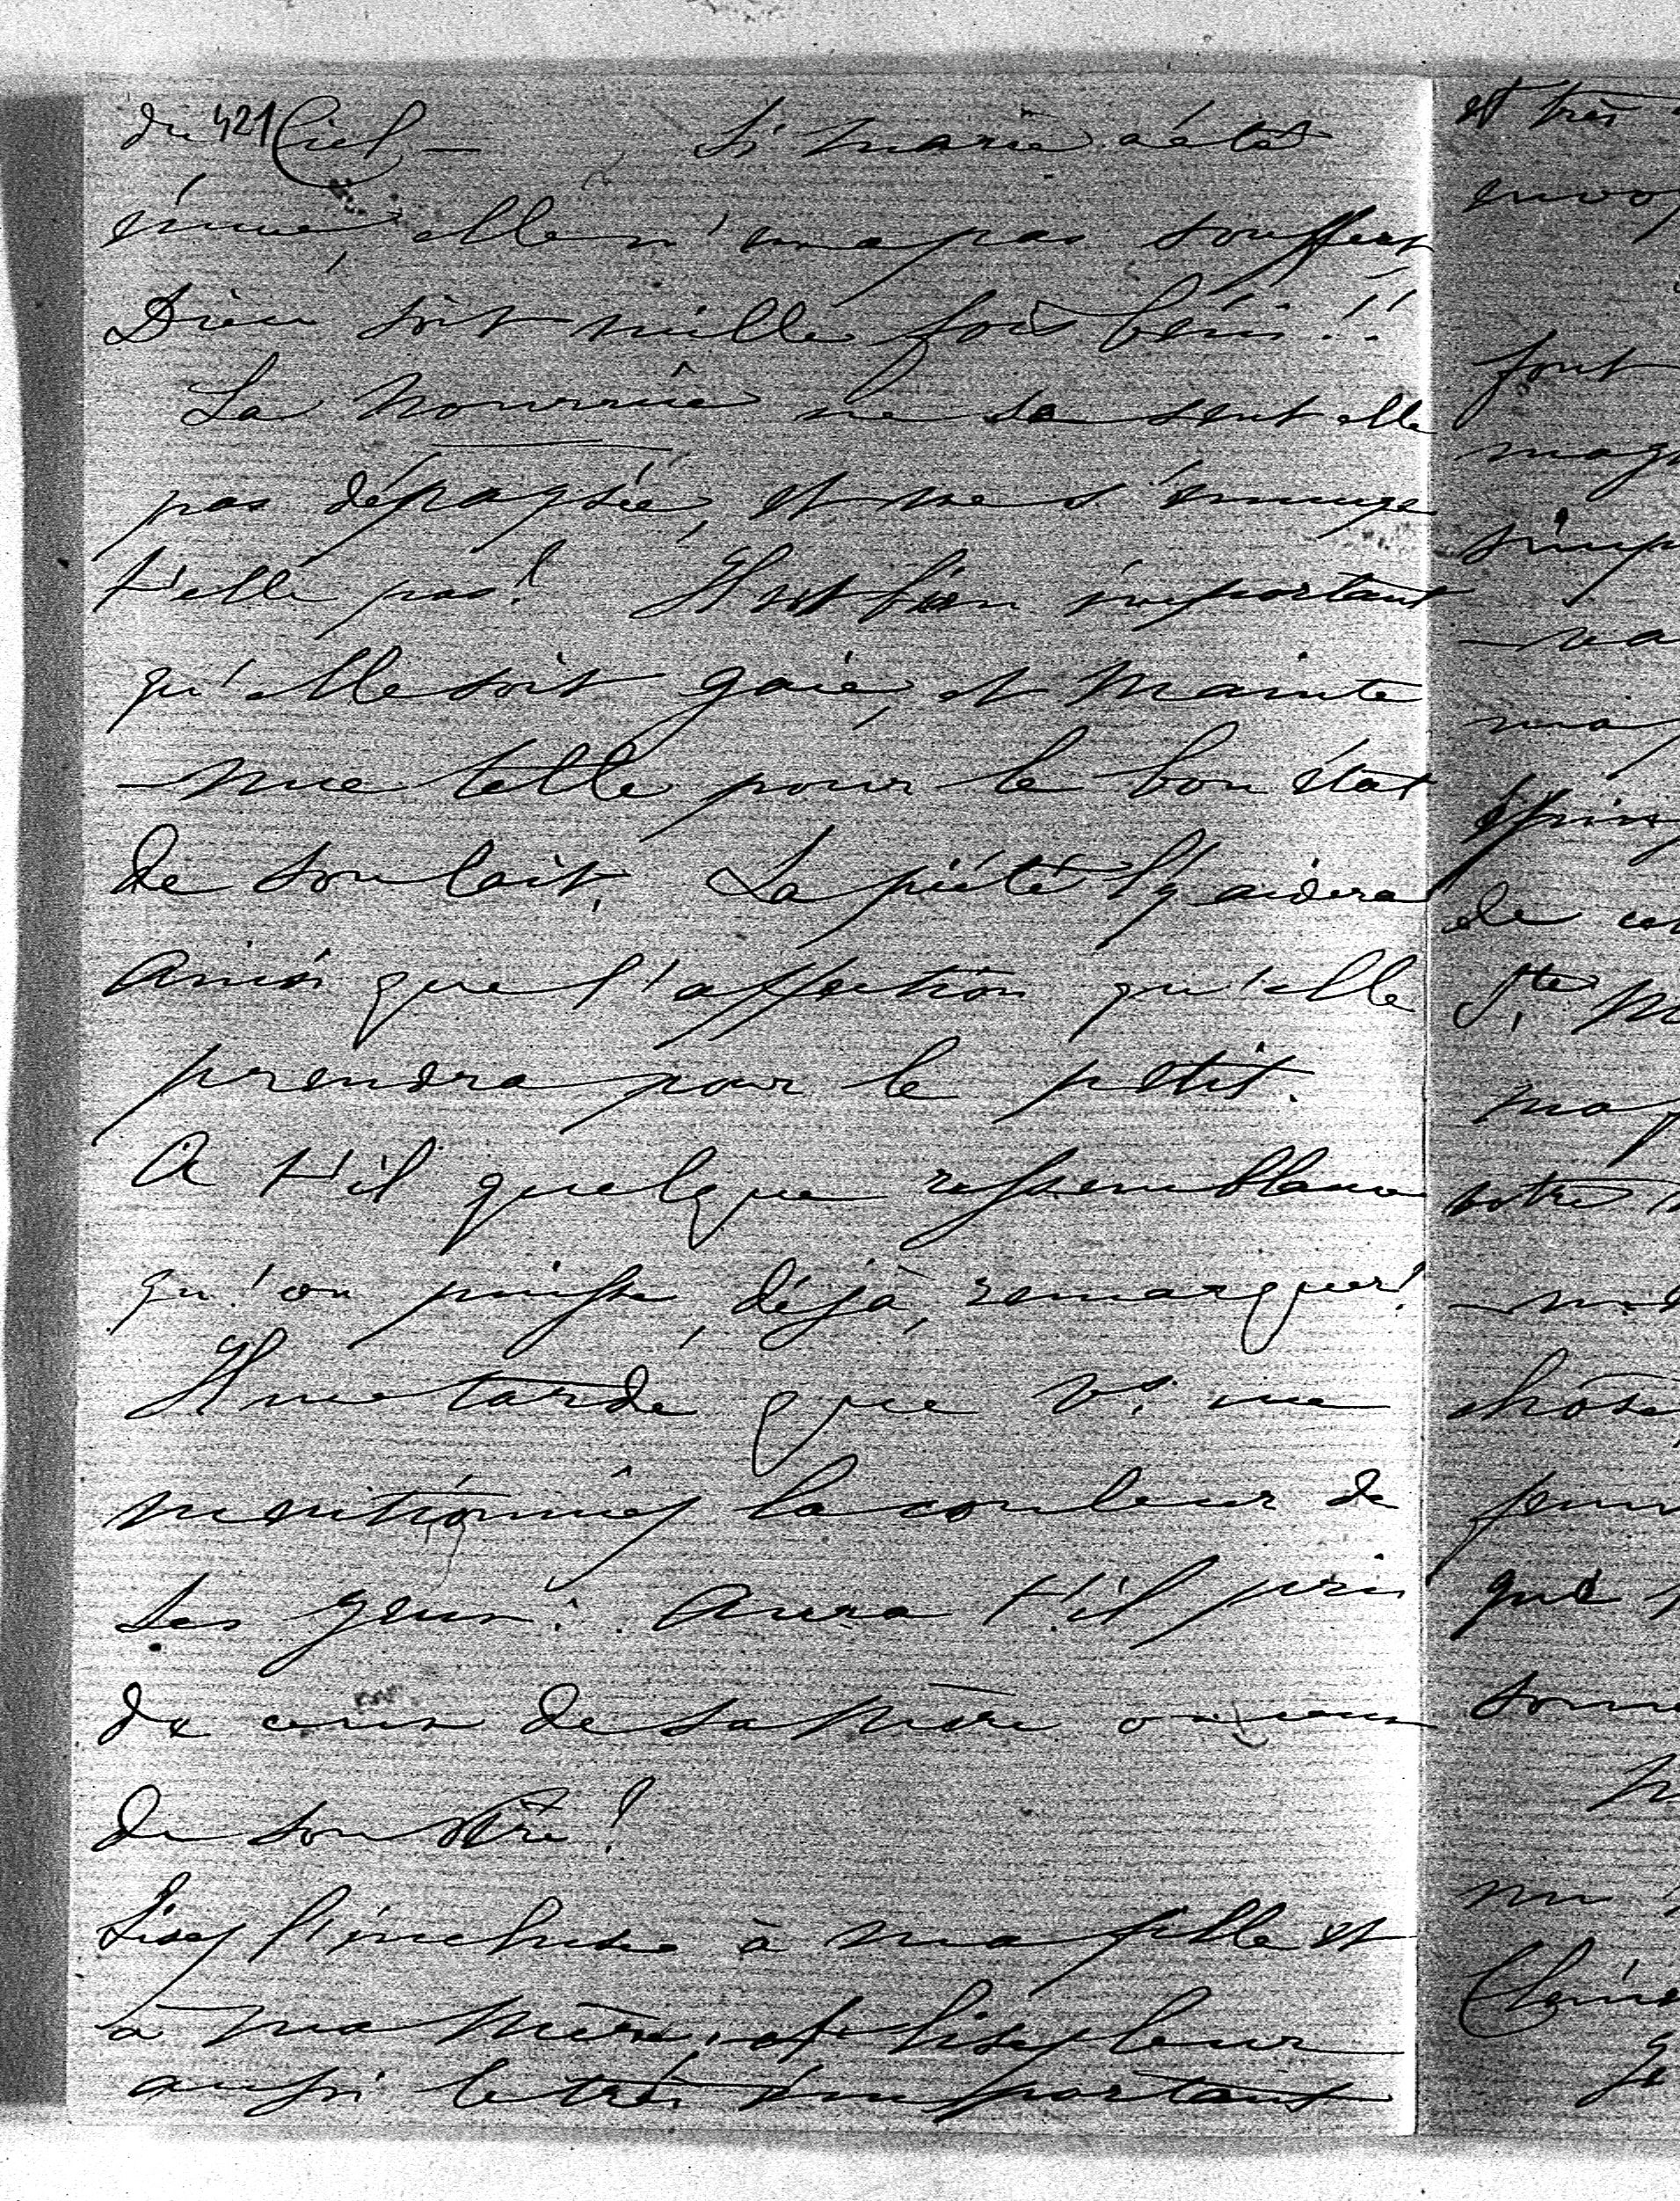 du 421 Ciel, — Si Marie a été
émue, elle n'en a pas souffert
Dieu soit mille fois béni!!
La Nourrice ne se sent elle
pas dépaysée, et ne s'ennuye
t'elle pas? Il est bien important
qu'elle soit gaie, et mainte
-nue telle pour le bon état
de son lait. La piété l'y aidera
Ainsi que l'affection qu'elle
prendra pour le petit.
A t'il quelque ressemblance
qu'on puisse, déjà, remarquer?
Il me tarde que vs. me
mentionniez la couleur de
ses yeux. Aura t'il pris
de ceux de sa Mère ou ceux
de son Père?
Lisez l'incluse à ma fille et
à ma Mère, et lisez leur
aussi le très important
et très
font
de
Ste
votre
chose
que